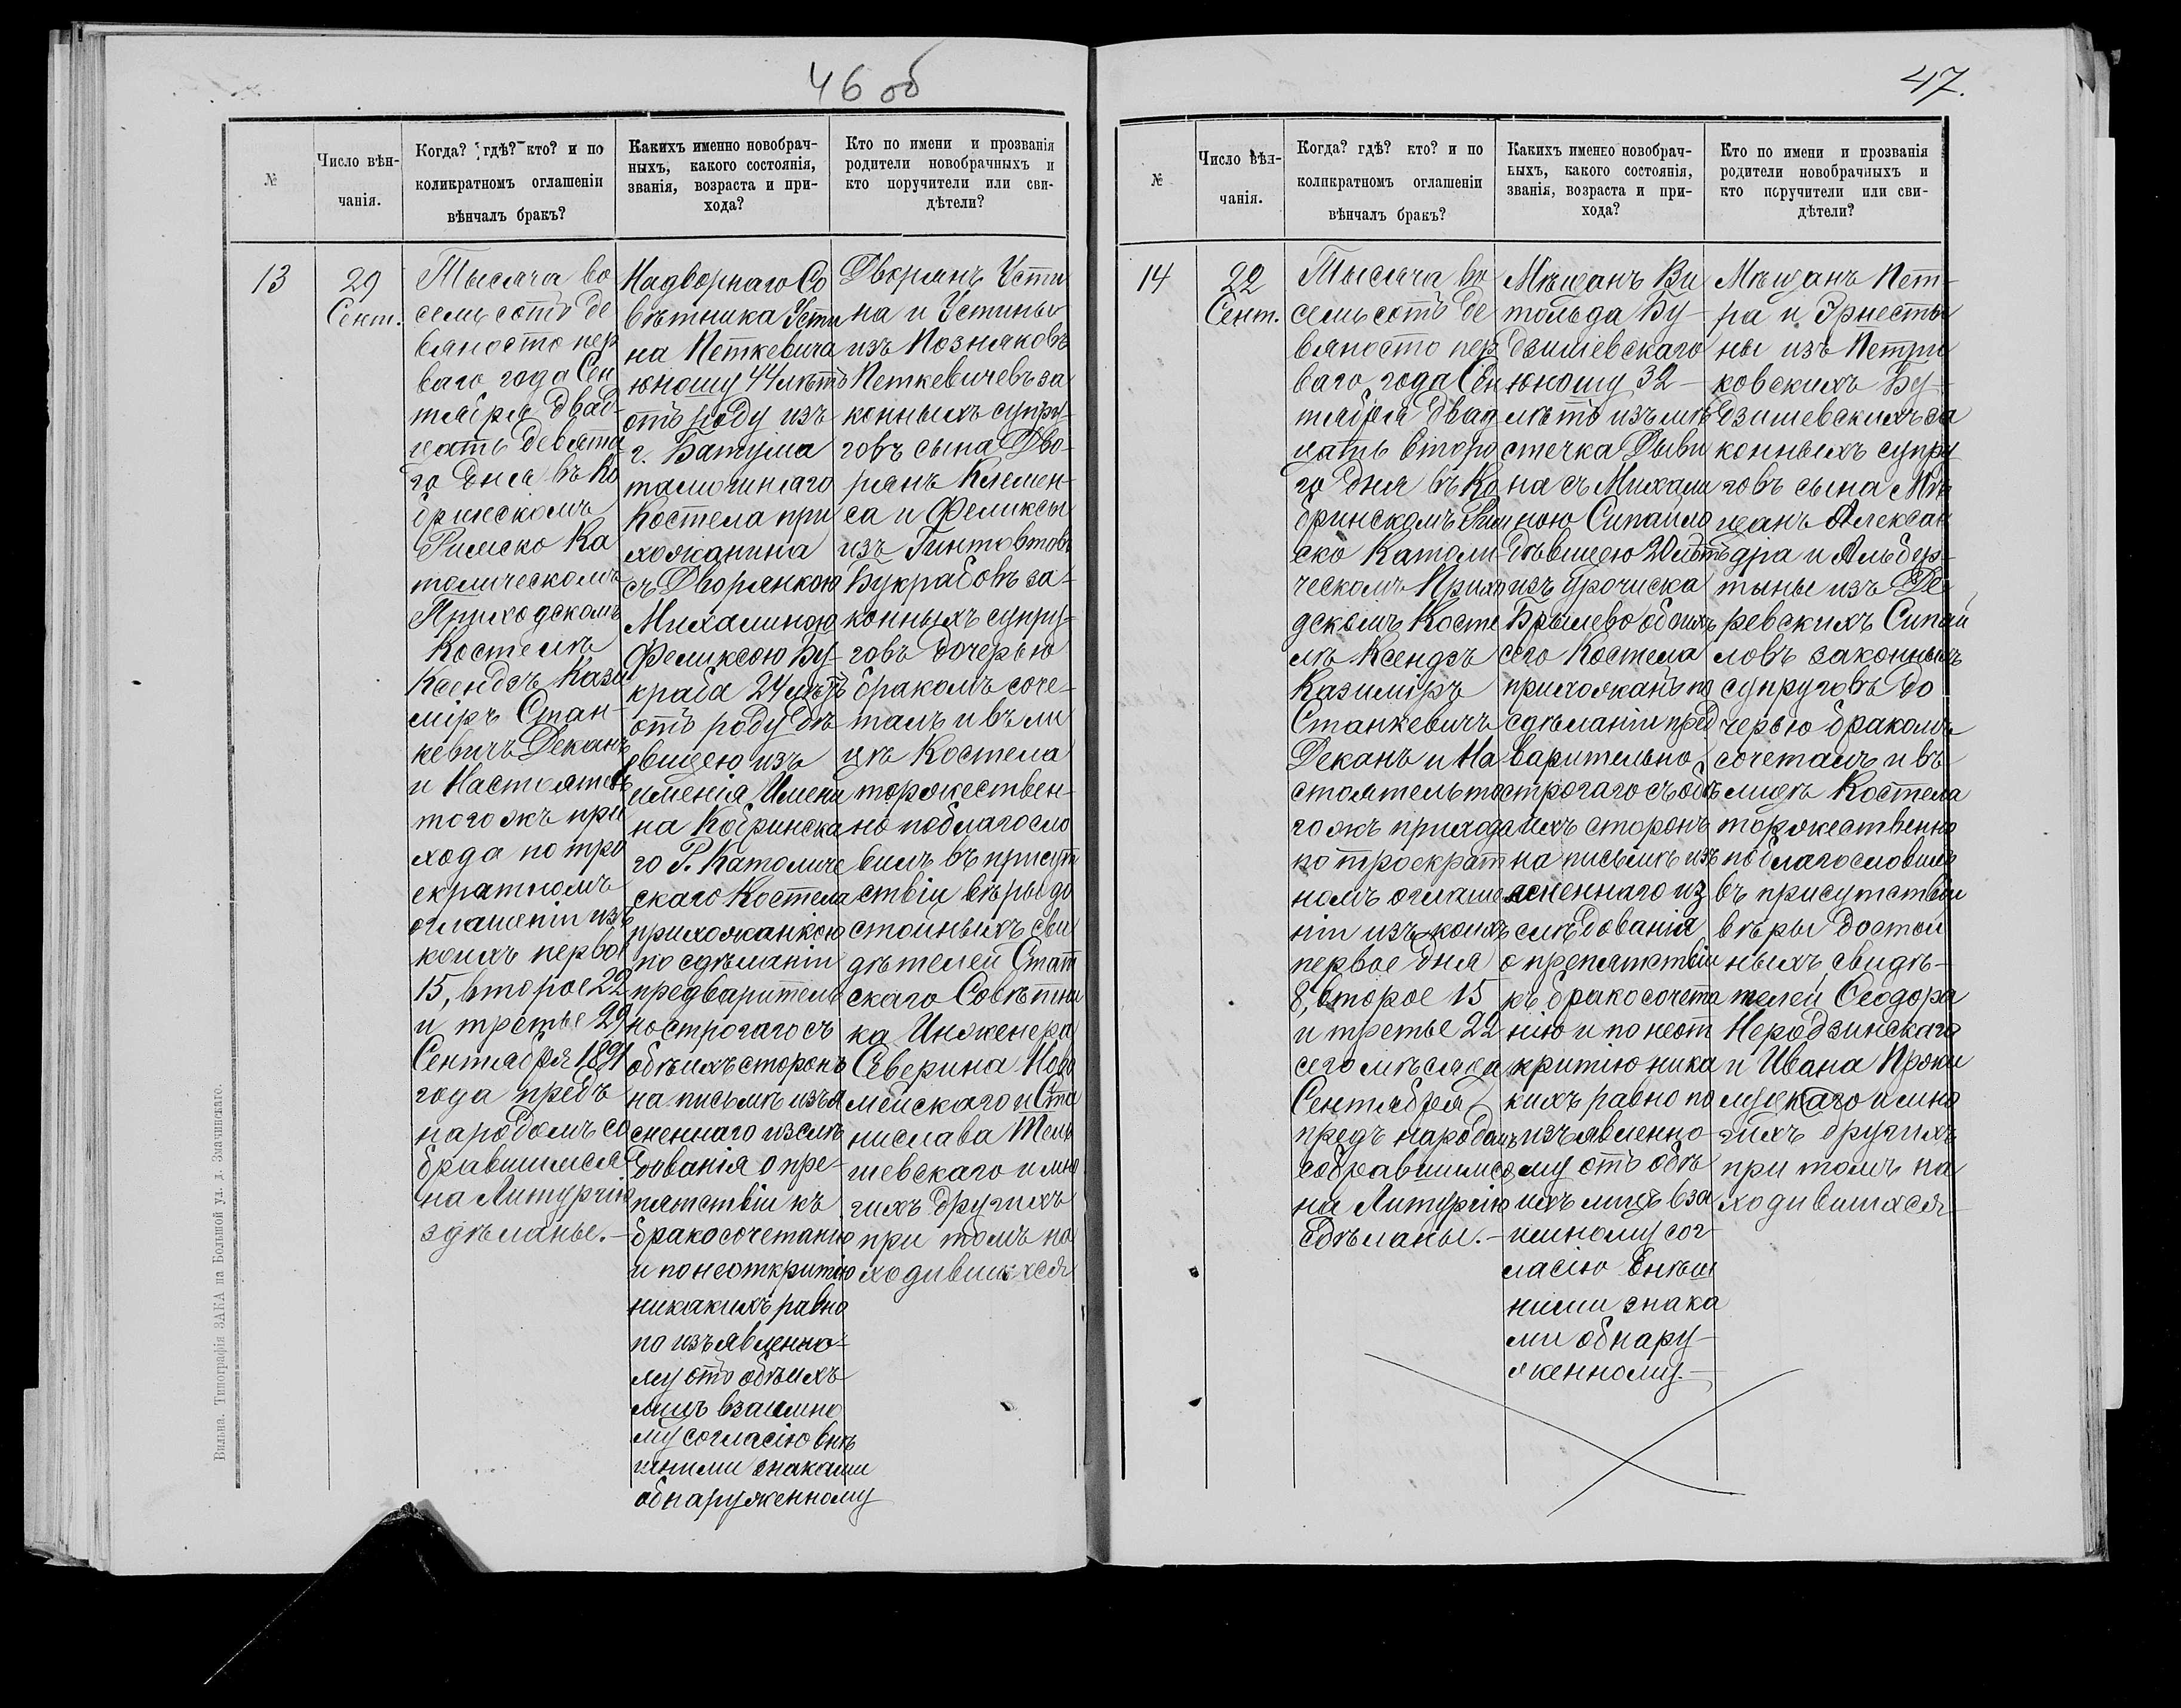 46 об
№
Число вѣн-
чанія.
Когда? гдѣ? кто? и по
коликратномъ оглашеніи
вѣнчалъ бракъ?
Каихъ именно новобрач-
ныхъ, какого состоянія,
званія, возраста и при-
хода?
Кто по имени и прозванія
родители новобрачныхъ и
кто поручители или сви-
дѣтели?
13
29
Сент.
Тысяча во
семь сотъ де
вяносто пер
ваго года Сен
тября двад-
цать девята
го дня въ Ко
бринскомъ
Римско Ка
толическомъ
Приходскомъ
Костелѣ
Ксендзъ Кази
міръ Стан-
кевичъ Деканъ
и Настоятель
тогожъ при
хода по тро
екратномъ
оглашеніи изъ
коихъ первое
15, второе 22
и третье 29
Сентября 1891
года предъ
народомъ со
бравшимся
на Литургію
здѣланые.-
Надворнаго Со
вѣтника Усти
на Петкевича
юношу 44 лѣтъ
отъ роду изъ
г. Батума
тамошняго
Костела при
хожанина
съ Дворянкою
Михалиною
Феликсою Бу-
краба 24 лѣтъ
отъ роду дѣ
вицею изъ
имѣнія Имени
на Кобринска
го Р. Католиче
скаго Костела
прихожанкою
по сдѣланіи
предваритель
но строгаго съ
обѣихъ сторонъ
на письмѣ изъя
сненнаго изслѣ
дованія о пре-
пятствіи къ
бракосочетанію
и по неоткритію
никакихъ равно
по изъявленно-
му отъ обѣихъ
лицъ взаимно
му согласію внѣ
шними знаками
обнаруженному
Дворянъ Усти
на и Устины
изъ Позняковъ
Петкевичевъ за
конныхъ супру-
говъ сына Дво-
рянъ Клемен-
са и Феликсы
изъ Гинтовтовъ
Букрабовъ за-
конныхъ супру-
говъ дочерью
бракомъ соче-
талъ и въ ли
цѣ Костела
торжествен-
но поблагосло
вилъ въ присут
ствіи вѣры до
стойныхъ сви
дѣтелей Стат
скаго Совѣтни
ка Инженера
Северина Ново
мейскаго и Ста
нислава Тель
шевскаго и мно
гихъ другихъ
при томъ на
ходившихся
Вильна. Типографія ЗАКА на Большой ул. д. Змачинскаго.
47.
№
Число вѣн-
чанія.
Когда? гдѣ? кто? и по
коликратномъ оглашеніи
вѣнчалъ бракъ?
Какихъ именно новобрач-
ныхъ, какого состоянія,
званія, возраста и при-
хода?
Кто по имени и прозванія
родители новобрачныхъ и
кто поручители или сви-
дѣтели?
14
22
Сент.
Тысяча во
семь сотъ де
вяносто пер
ваго года Сен
тября двад
цать второ
го дня въ Ко
бринскомъ Рим
ско Католи-
ческомъ Прихо
дскомъ Косте
лѣ Ксендзъ
Казиміръ
Станкевичъ
Деканъ и На
стоятель то
гожъ прихода
по троекрат
номъ оглаше
ніи изъ коихъ
первое дня
8, второе 15
и третье 22
сего мѣсяца
Сентября
предъ народомъ
собравшимся
на Литургію
сдѣланые.-
Мѣщанъ Ви
тольда Бу-
дзишевскаго
юношу 32-
лѣтъ изъ мѣ
стечка Дыви
на съ Михали
ною Сипайло
дѣвицею 20 лѣтъ
изъ урочиска
Брылево обоихъ
сего Костела
прихожанъ по
сдѣланіи пред
варительно
строгаго съ обѣ
ихъ сторонъ
на письмѣ изъ
ясненнаго из
слѣдованія
о препятствіи
къ бракосочета
нію и по неот
критію ника
кихъ равно по
изъявленно-
му отъ обѣ
ихъ лицъ вза
имному сог-
ласію внѣш
ними знака
ми обнару-
женному.-
Мѣщанъ Пет-
ра и Эрнесты
ны изъ Петри
ковскихъ Бу-
дзишевскихъ за
конныхъ супру
говъ сына Мѣ
щанъ Алексан
дра и Альбер-
тыны изъ Де
ревскихъ Сипай
ловъ законныхъ
супруговъ до
черью бракомъ
сочеталъ и въ
лицѣ Костела
торжественно
поблагословилъ
въ присутствіи
вѣры достой
ныхъ свидѣ-
телей Ѳеодора
Неродзинскаго
и Ивана Проки
муцкаго и мно
гихъ другихъ
при томъ на
ходившихся